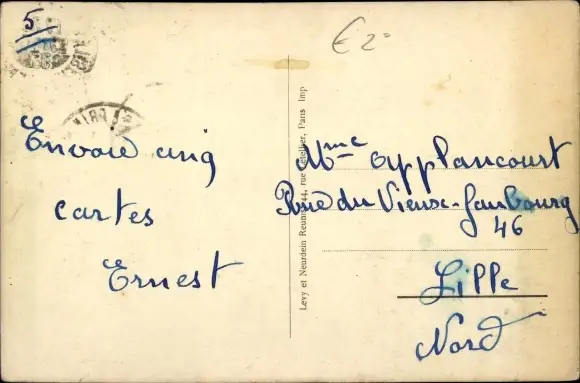 5
€ 2
Envoie cinq
cartes
Ernest
Levy et Neurdein Reunis, 44, rue Letellier, Paris Imp
Mme Applancourt
Rue du Vieux-Faubourg
46
Lille
Nord